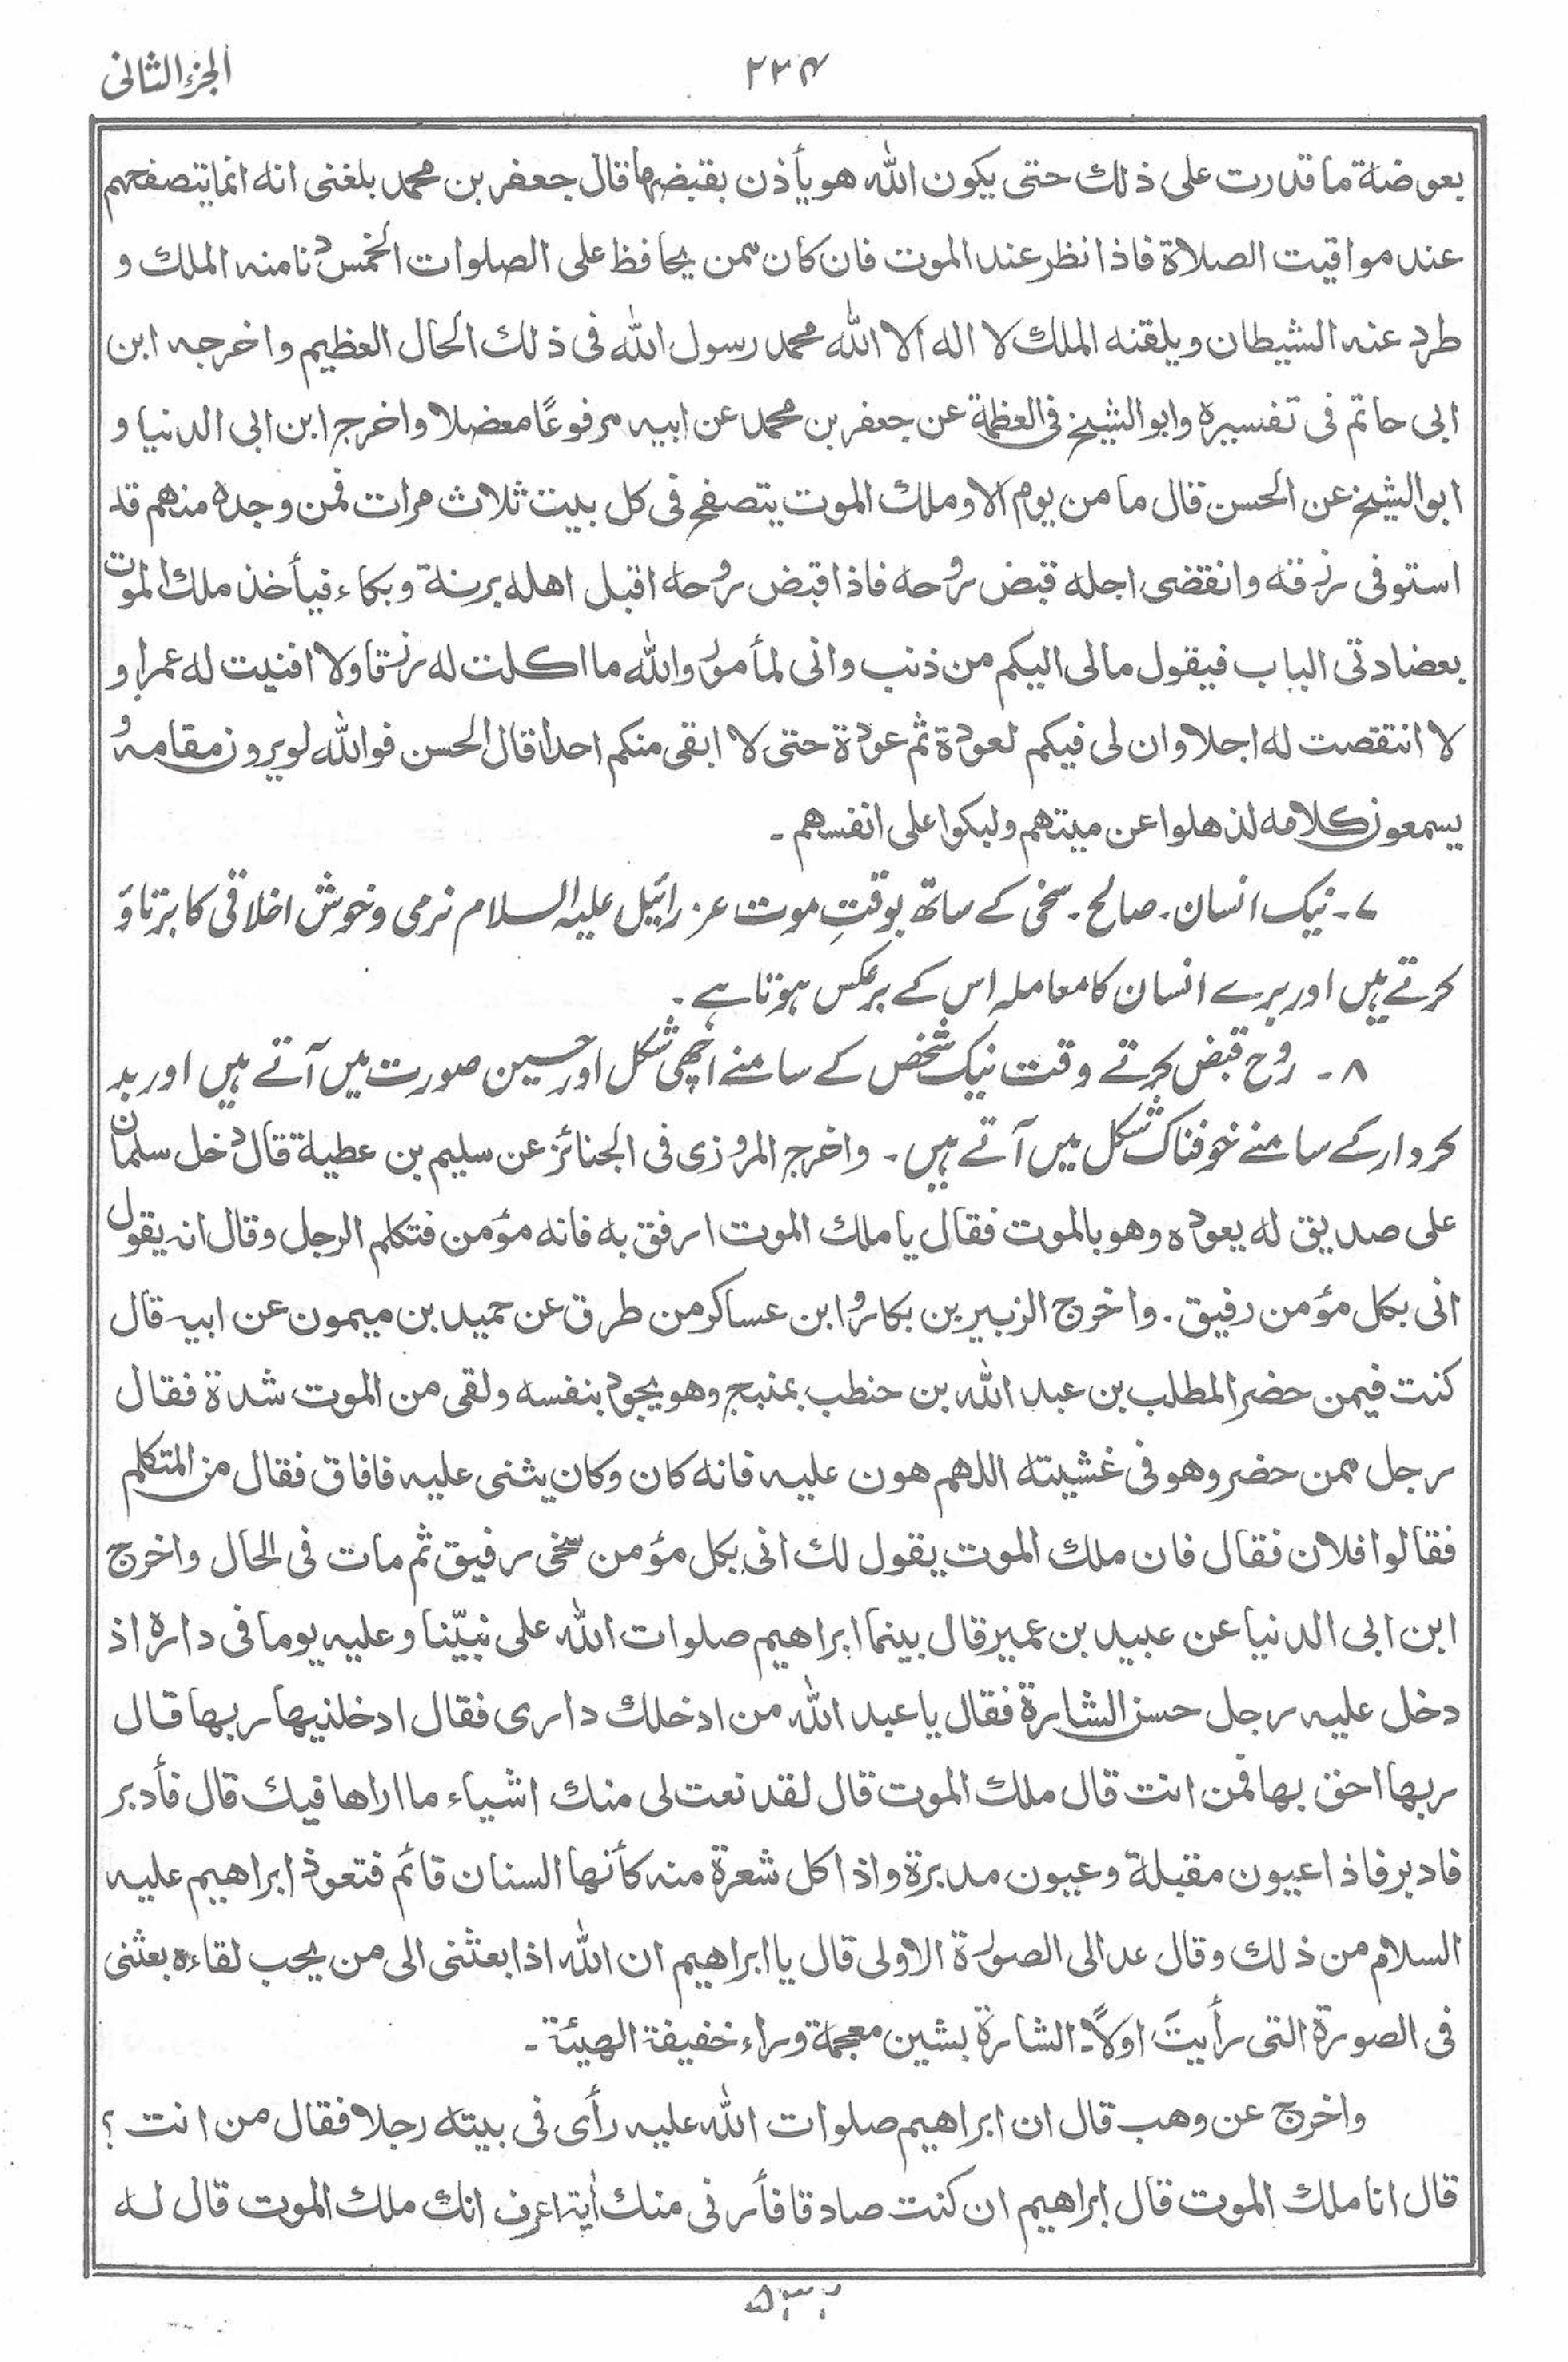 الجزء الثانی
۲۲۴
بعوضة ما قدرت على ذلك حتى يكون الله هو يأذن بقبضها قال جعفر بن محمد بلغنى انه انما يتصفحهم
عند مواقيت الصلاة فاذا نظر عند الموت فان كان ممن يحافظ على الصلوات الخمس دنا منه الملك و
طرد عنه الشيطان ويلقنه الملك لا اله الا الله محمد رسول الله فى ذلك الحال العظيم واخرجه ابن
ابى حاتم فى تفسيره وابو الشيخ فى العظمة عن جعفر بن محمد عن ابيه مرفوعًا معضلا واخرج ابن ابى الدنيا و
ابو الشيخ عن الحسن قال ما من يوم الا وملك الموت يتصفح فى كل بيت ثلاث مرات فمن وجده منهم قد
استوفى رزقه وانقضى اجله قبض روحه فاذا قبض روحه اقبل اهله برنة وبكاء فيأخذ ملك الموت
بعضادتى الباب فيقول مالى اليكم من ذنب وانى لمأمور والله ما اكلت له رزقا ولا افنيت له عمرا و
لا انتقصت له اجلا وان لى فيكم لعودة ثم عودة حتى لا ابقى منكم احدا قال الحسن فوالله لو يرون مقامه و
يسمعون كلامه لذهلوا عن ميتهم ولبكوا على انفسهم ـ
۷ـ نیک انسان۔ صالح۔ سخی کے ساتھ بوقتِ موت عزرائیل علیہ السلام نرمی و خوش اخلاقی کا برتاؤ
کرتے ہیں اور برے انسان کا معاملہ اس کے برعکس ہوتا ہے ۔
۸ ـ روح قبض کرتے وقت نیک شخص کے سامنے اچھی شکل اور حسین صورت میں آتے ہیں اور بد
کردار کے سامنے خوفناک شکل میں آتے ہیں ۔ واخرج المروزى فى الجنائز عن سليم بن عطية قال دخل سلمان
على صديق له يعوده وهو بالموت فقال يا ملك الموت ارفق به فانه مؤمن فتكلم الرجل وقال انه يقول
انى بكل مؤمن رفيق . واخرج الزبير بن بكار وابن عساكر من طرق عن حميد بن ميمون عن ابيه قال
كنت فيمن حضر المطلب بن عبد الله بن حنطب بمنبج وهو يجود بنفسه ولقى من الموت شدة فقال
رجل ممن حضر وهو فى غشيته اللهم هون عليه فانه كان وكان يثنى عليه فافاق فقال من المتكلم
فقالوا فلان فقال فان ملك الموت يقول لك انى بكل مؤمن سخى رفيق ثم مات فى الحال واخرج
ابن ابى الدنيا عن عبيد بن عمير قال بينما ابراهيم صلوات الله على نبيّنا وعليه يوما فى داره اذ
دخل عليه رجل حسن الشارة فقال يا عبد الله من ادخلك دارى فقال ادخلنيها ربها قال
ربها احق بها فمن انت قال ملك الموت قال لقد نعت لى منك اشياء ما اراها فيك قال فأدبر
فادبر فاذا عيون مقبلة وعيون مدبرة واذا كل شعرة منه كأنها السنان قائم فتعوذ ابراهيم عليه
السلام من ذلك وقال عد الى الصورة الاولى قال يا ابراهيم ان الله اذا بعثنى الى من يحب لقاءه بعثنى
فى الصورة التى رأيتَ اولًا۔ الشارة بشين معجمة وراء خفيفة الهيئة ۔
واخرج عن وهب قال ان ابراهيم صلوات الله عليه رأى فى بيته رجلا فقال من انت ؟
قال انا ملك الموت قال ابراهيم ان كنت صادقا فأرنى منك أية اعرف انك ملك الموت قال له